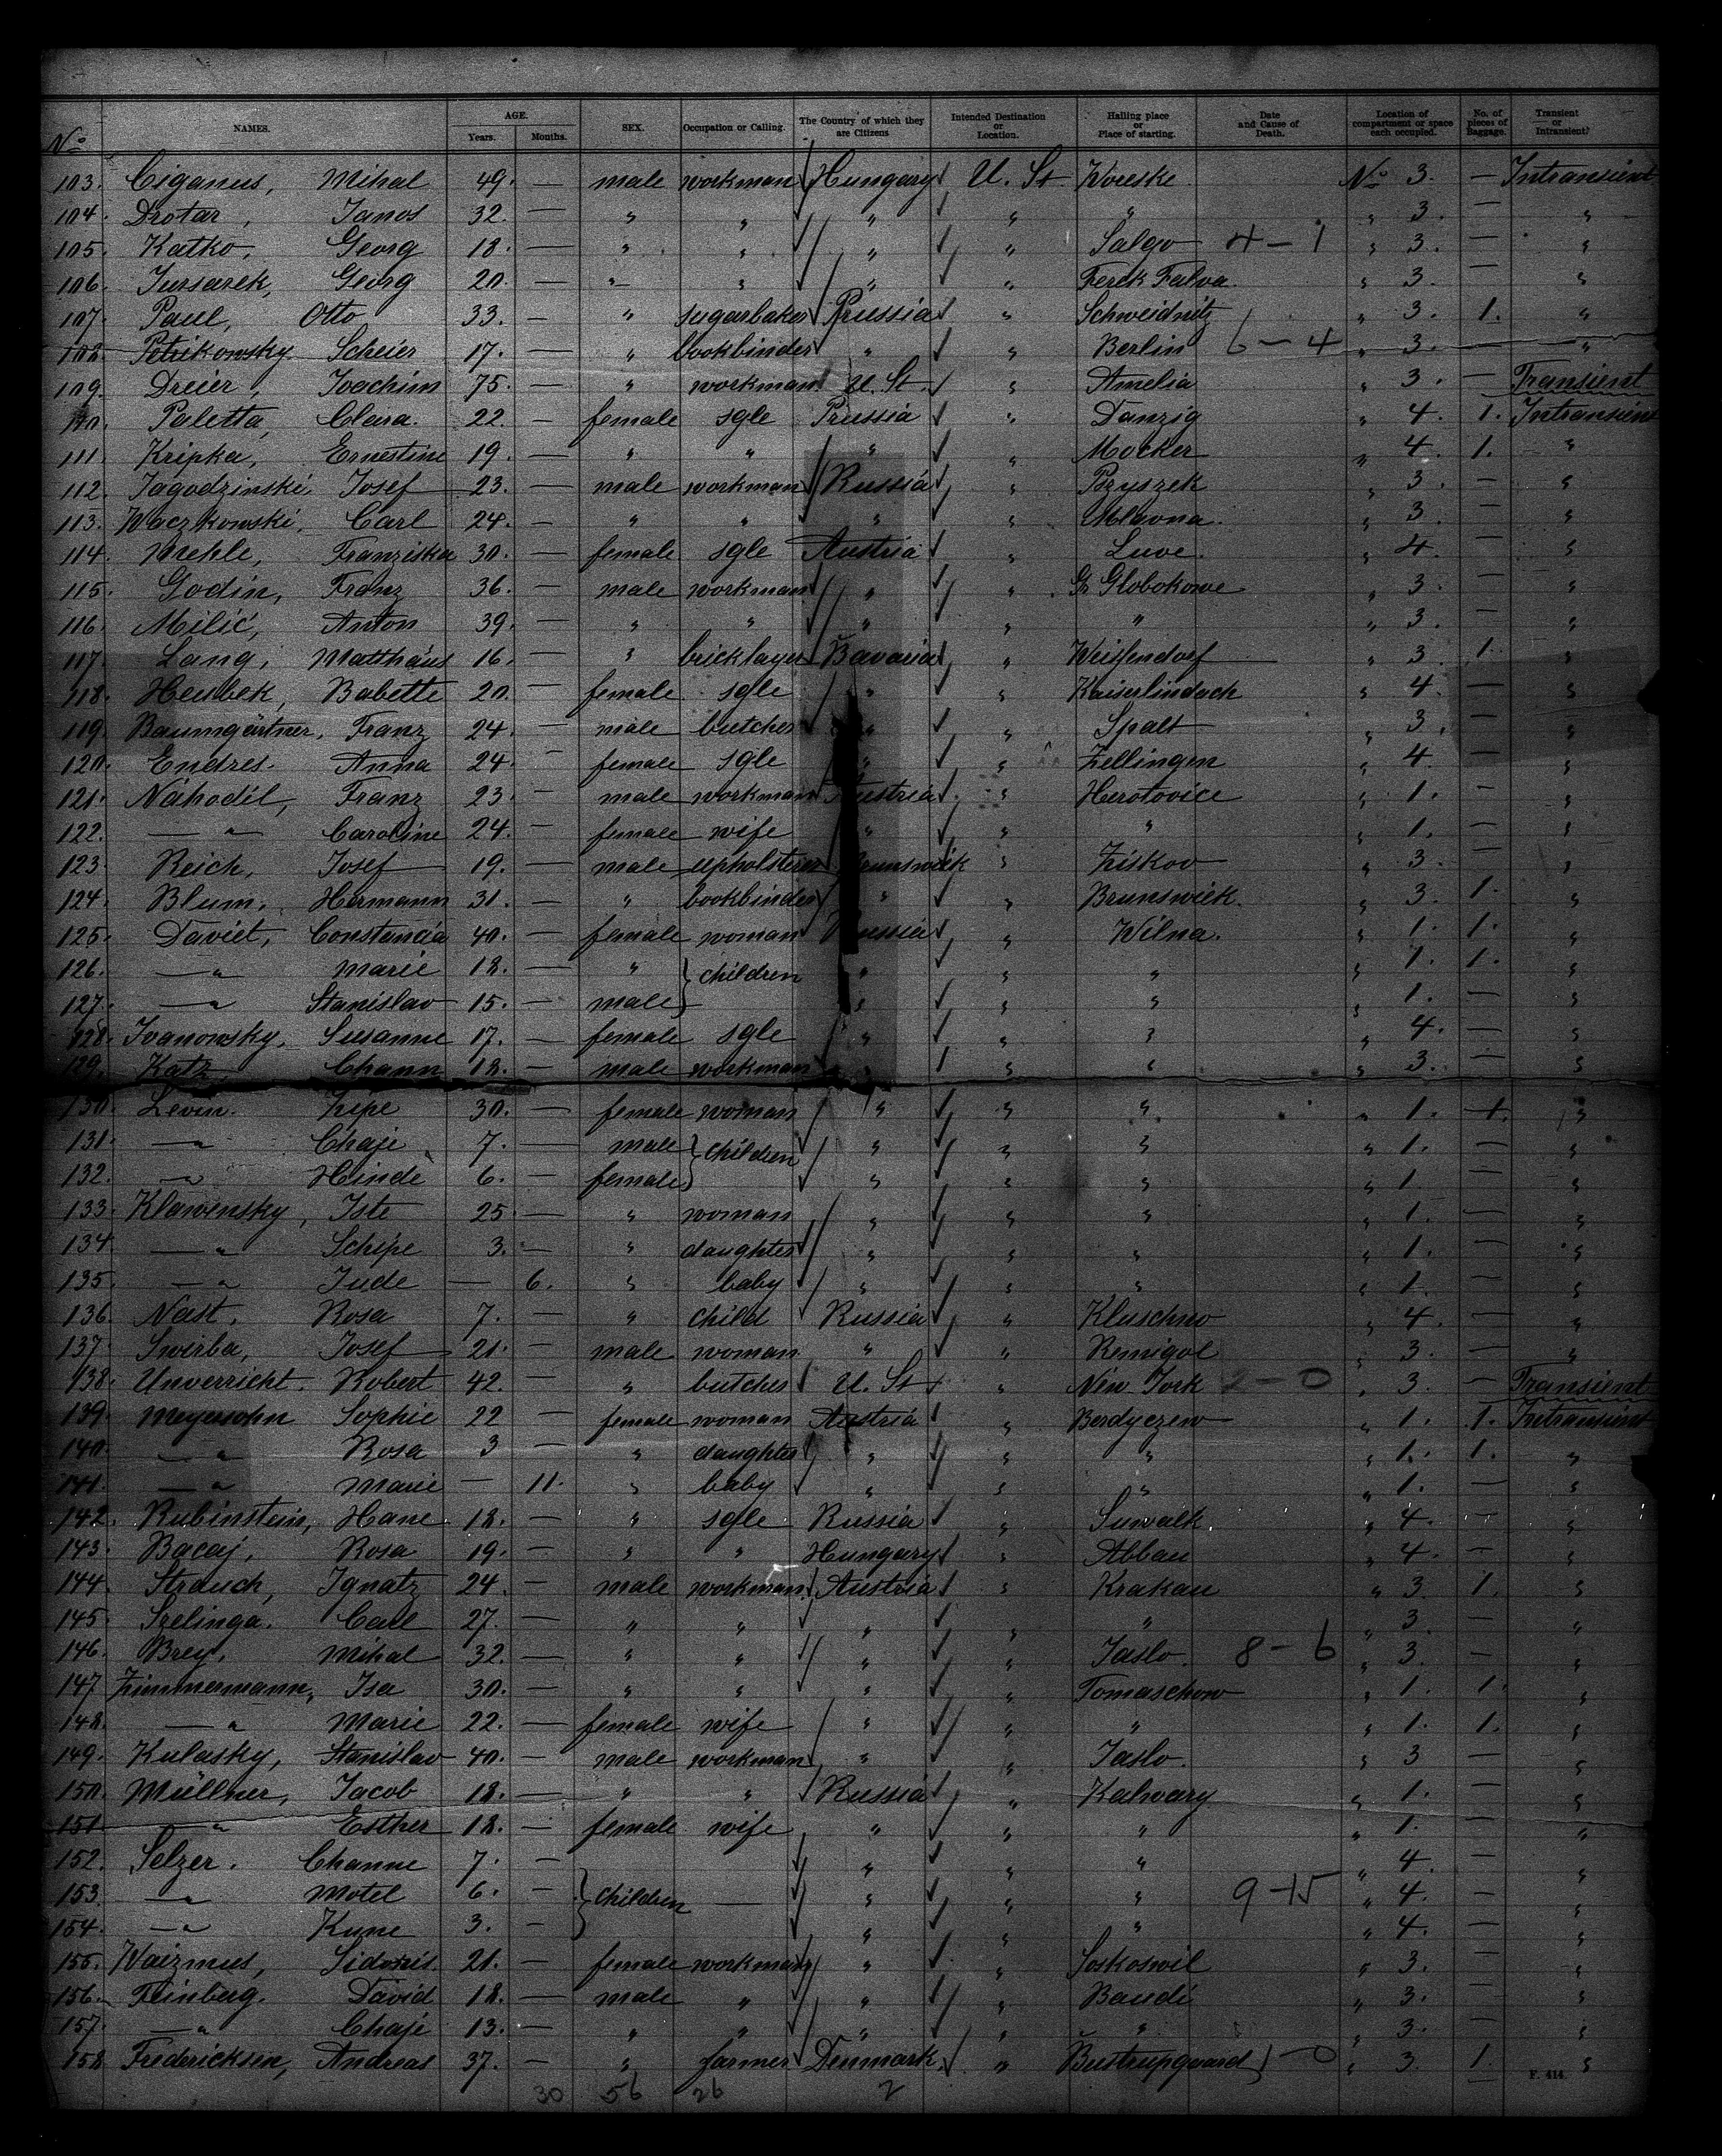 No NAMES. AGE. Years. Months. SEX. Occupation or Calling. The Country of which they are Citizens Intended Destination or Location. Hailing place or Place of starting. Date and Cause of Death. Location of compartment or space each occupied. No. of pieces of Baggage. Transient or Intransient?
103. Ciganus, Mihal 49. — male workman Hungary U. St No 3. — Intransient
104. Drotar, Janos 32. — " " " " " " 3. — "
105. Katko, Georg 18. — " " " " Salgo 4 – 1 " 3. — "
106. Jursarek, Georg 20. — " " " " Ferek Falva. " 3. — "
107. Paul, Otto 33. — " sugarbaker Prussia " Schweidnitz " 3. 1. "
108. Petrikowsky Scheier 17. — " bookbinder " " Berlin 6 – 4 " 3. — "
109. Dreier, Joachim 75. — " workman U. St. " Amelia " 3. — Transient
110. Paletta, Clara. 22. — female sgle Prussia " Danzig " 4. 1. Intransient
111. Kripka, Ernestine 19. — " " " " Mocker " 4. 1. "
112. Jagodzinski, Josef 23. — male workman Russia " " 3. — "
113. Waczkowski, Carl 24. — " " " " Mlavna. " 3. — "
114. Mehle, Franziska 30. — female sgle Austria " Luve. " 4. — "
115. Godin, Franz 36. — male workman " " Gr Globokowe " 3. — "
116. Milić, Anton 39. — " " " " " " 3. — "
117. Lang, Matthäus 16. — " bricklayer Bavaria " Weissendorf " 3. 1. "
118. Heubek, Babette 20. — female sgle " " Kaiserlindach " 4. — "
119. Baumgärtner, Franz 24. — male butcher " " Spalt " 3. — "
120. Endres. Anna 24. — female sgle " " Zellingen " 4. — "
121. Náhodil, Franz 23. — male workman Austria " Herotovice " 1. — "
122. — " Caroline 24. — female wife " " " " 1. — "
123. Reich, Josef 19. — male upholsterer Brunswick " Ziskov " 3. — "
124. Blum, Hermann 31. — " bookbinder " " Brunswick. " 3. 1. "
125. Daviet, Constancia 40. — female woman Russia " Wilna. " 1. 1. "
126. — " Marie 18. — " } children " " " " 1. 1. "
127. — " Stanislav 15. — male " " " " 1. — "
128. Ivanowsky, Susanne 17. — female sgle " " " " 4. — "
129. Katz, Chann 18. — male workman " " " " 3. — "
130. Levin. Zipe 30. — female woman " " " " 1. 1. "
131. — " Chaje 7. — male } children " " " " 1. — "
132. — " Hinde 6. — female " " " " 1. — "
133. Klawensky, Iste 25. — " woman " " " " 1. — "
134. — " Schipe 3. — " daughter " " " " 1. — "
135. — " Jude — 6. " baby " " " " 1. — "
136. Nast, Rosa 7. — " child Russia " Kluschno " 4. — "
137. Swirba, Josef 21. — male woman " " Remigol " 3. — "
138. Unverricht. Robert 42. — " butcher U. St. " New York 2 – 0 " 3. — Transient
139. Meyersohn Sophie 22 — female woman Austria " Berdyczew " 1. 1. Intransient
140. — " Rosa 3 — " daughter " " " " 1. 1. "
141. — " Marie — 11. " baby " " " " 1. — "
142. Rubinstein, Hane 18. — " sgle Russia " Suwalk. " 4. — "
143. Bacaj, Rosa 19. — " " Hungary " Abbau " 4. — "
144. Strauch, Ignatz 24. — male workman. Austria " Krakau " 3 1. "
145. Szelinga. Carl 27. — " " " " " " 3. — "
146. Brey, Mihal 32. — " " " " Jaslo. 8 – 6 " 3. — "
147 Zimmermann, Isa 30. — " " " " Tomaschow " 1. 1. "
148. — " Marie 22. — female wife " " " " 1. 1. "
149. Kulasky, Stanislav 40. — male workman " " Jaslo. " 3 — "
150. Müllner, Jacob 18. — " " Russia " Kalvary " 1. — "
151. — " Esther 18. — female wife " " " " 1. — "
152. Selzer. Channe 7. — " " " " 4. — "
153. — " Motel 6. — } children — " " " 9 – 15 " 4. — "
154. — " Kune 3. — " " " " 4. — "
155. Waizmus, Sidonis. 21. — female workman " " Soskoswil " 3. — "
156. Feinberg. David 18. — male " " " Baudi " 3. — "
157. — " Chaje 13. — " " " " " " 3. — "
158 Fredericksen, Andreas 37. — " farmer Denmark. " Bustrupgaard 1 – 0 " 3. 1. "
30 56 26 2
F. 414.